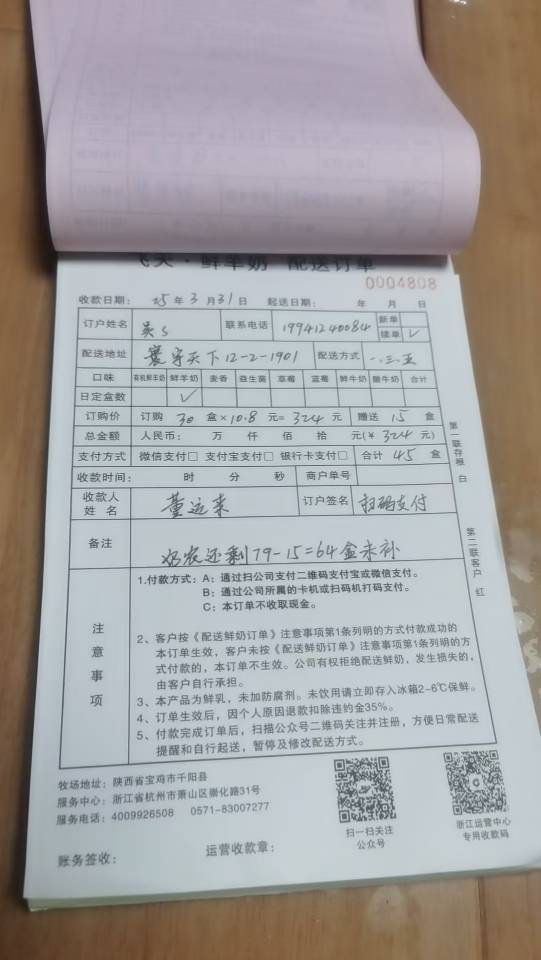 飞天·鲜羊奶 配送订单
0004808
收款日期： 25年3月31日 起送日期： 年 月 日
订户姓名 吴S 联系电话 19941240084 新单 续单 ✓
配送地址 寰宇天下12-2-1901 配送方式 一.三.五
口味 有机鲜羊奶 鲜羊奶 麦香 益生菌 草莓 蓝莓 鲜牛奶 酸牛奶 合计
日定盒数 ✓
订购价 订购 30 盒×10.8元=324元 赠送 15 盒
总金额 人民币： 万 仟 佰 拾 元(¥ 324 元)
支付方式 微信支付□ 支付宝支付□ 银行卡支付□ 合计 45 盒
收款时间： 时 分 秒 商户单号
收款人姓名 董运来 订户签名 扫码支付
备注 还剩79-15=64盒未补
注意事项
1.付款方式：A：通过扫公司支付二维码支付宝或微信支付。
B：通过公司所属的卡机或扫码机打码支付。
C：本订单不收取现金。
2、客户按《配送鲜奶订单》注意事项第1条列明的方式付款成功的
本订单生效，客户未按《配送鲜奶订单》注意事项第1条列明的方
式付款的，本订单不生效。公司有权拒绝配送鲜奶，发生损失的，
由客户自行承担。
3、本产品为鲜乳，未加防腐剂。未饮用请立即存入冰箱2-6℃保鲜。
4、订单生效后，因个人原因退款扣除违约金35%。
5、付款完成订单后，扫描公众号二维码关注并注册，方便日常配送
提醒和自行起送，暂停及修改配送方式。
第一联存根 白
第二联客户 红
牧场地址：陕西省宝鸡市千阳县
服务中心：浙江省杭州市萧山区崇化路31号
服务电话：4009926508 0571-83007277
扫一扫关注
公众号
浙江运营中心
专用收款码
账务签收： 运营收款章：